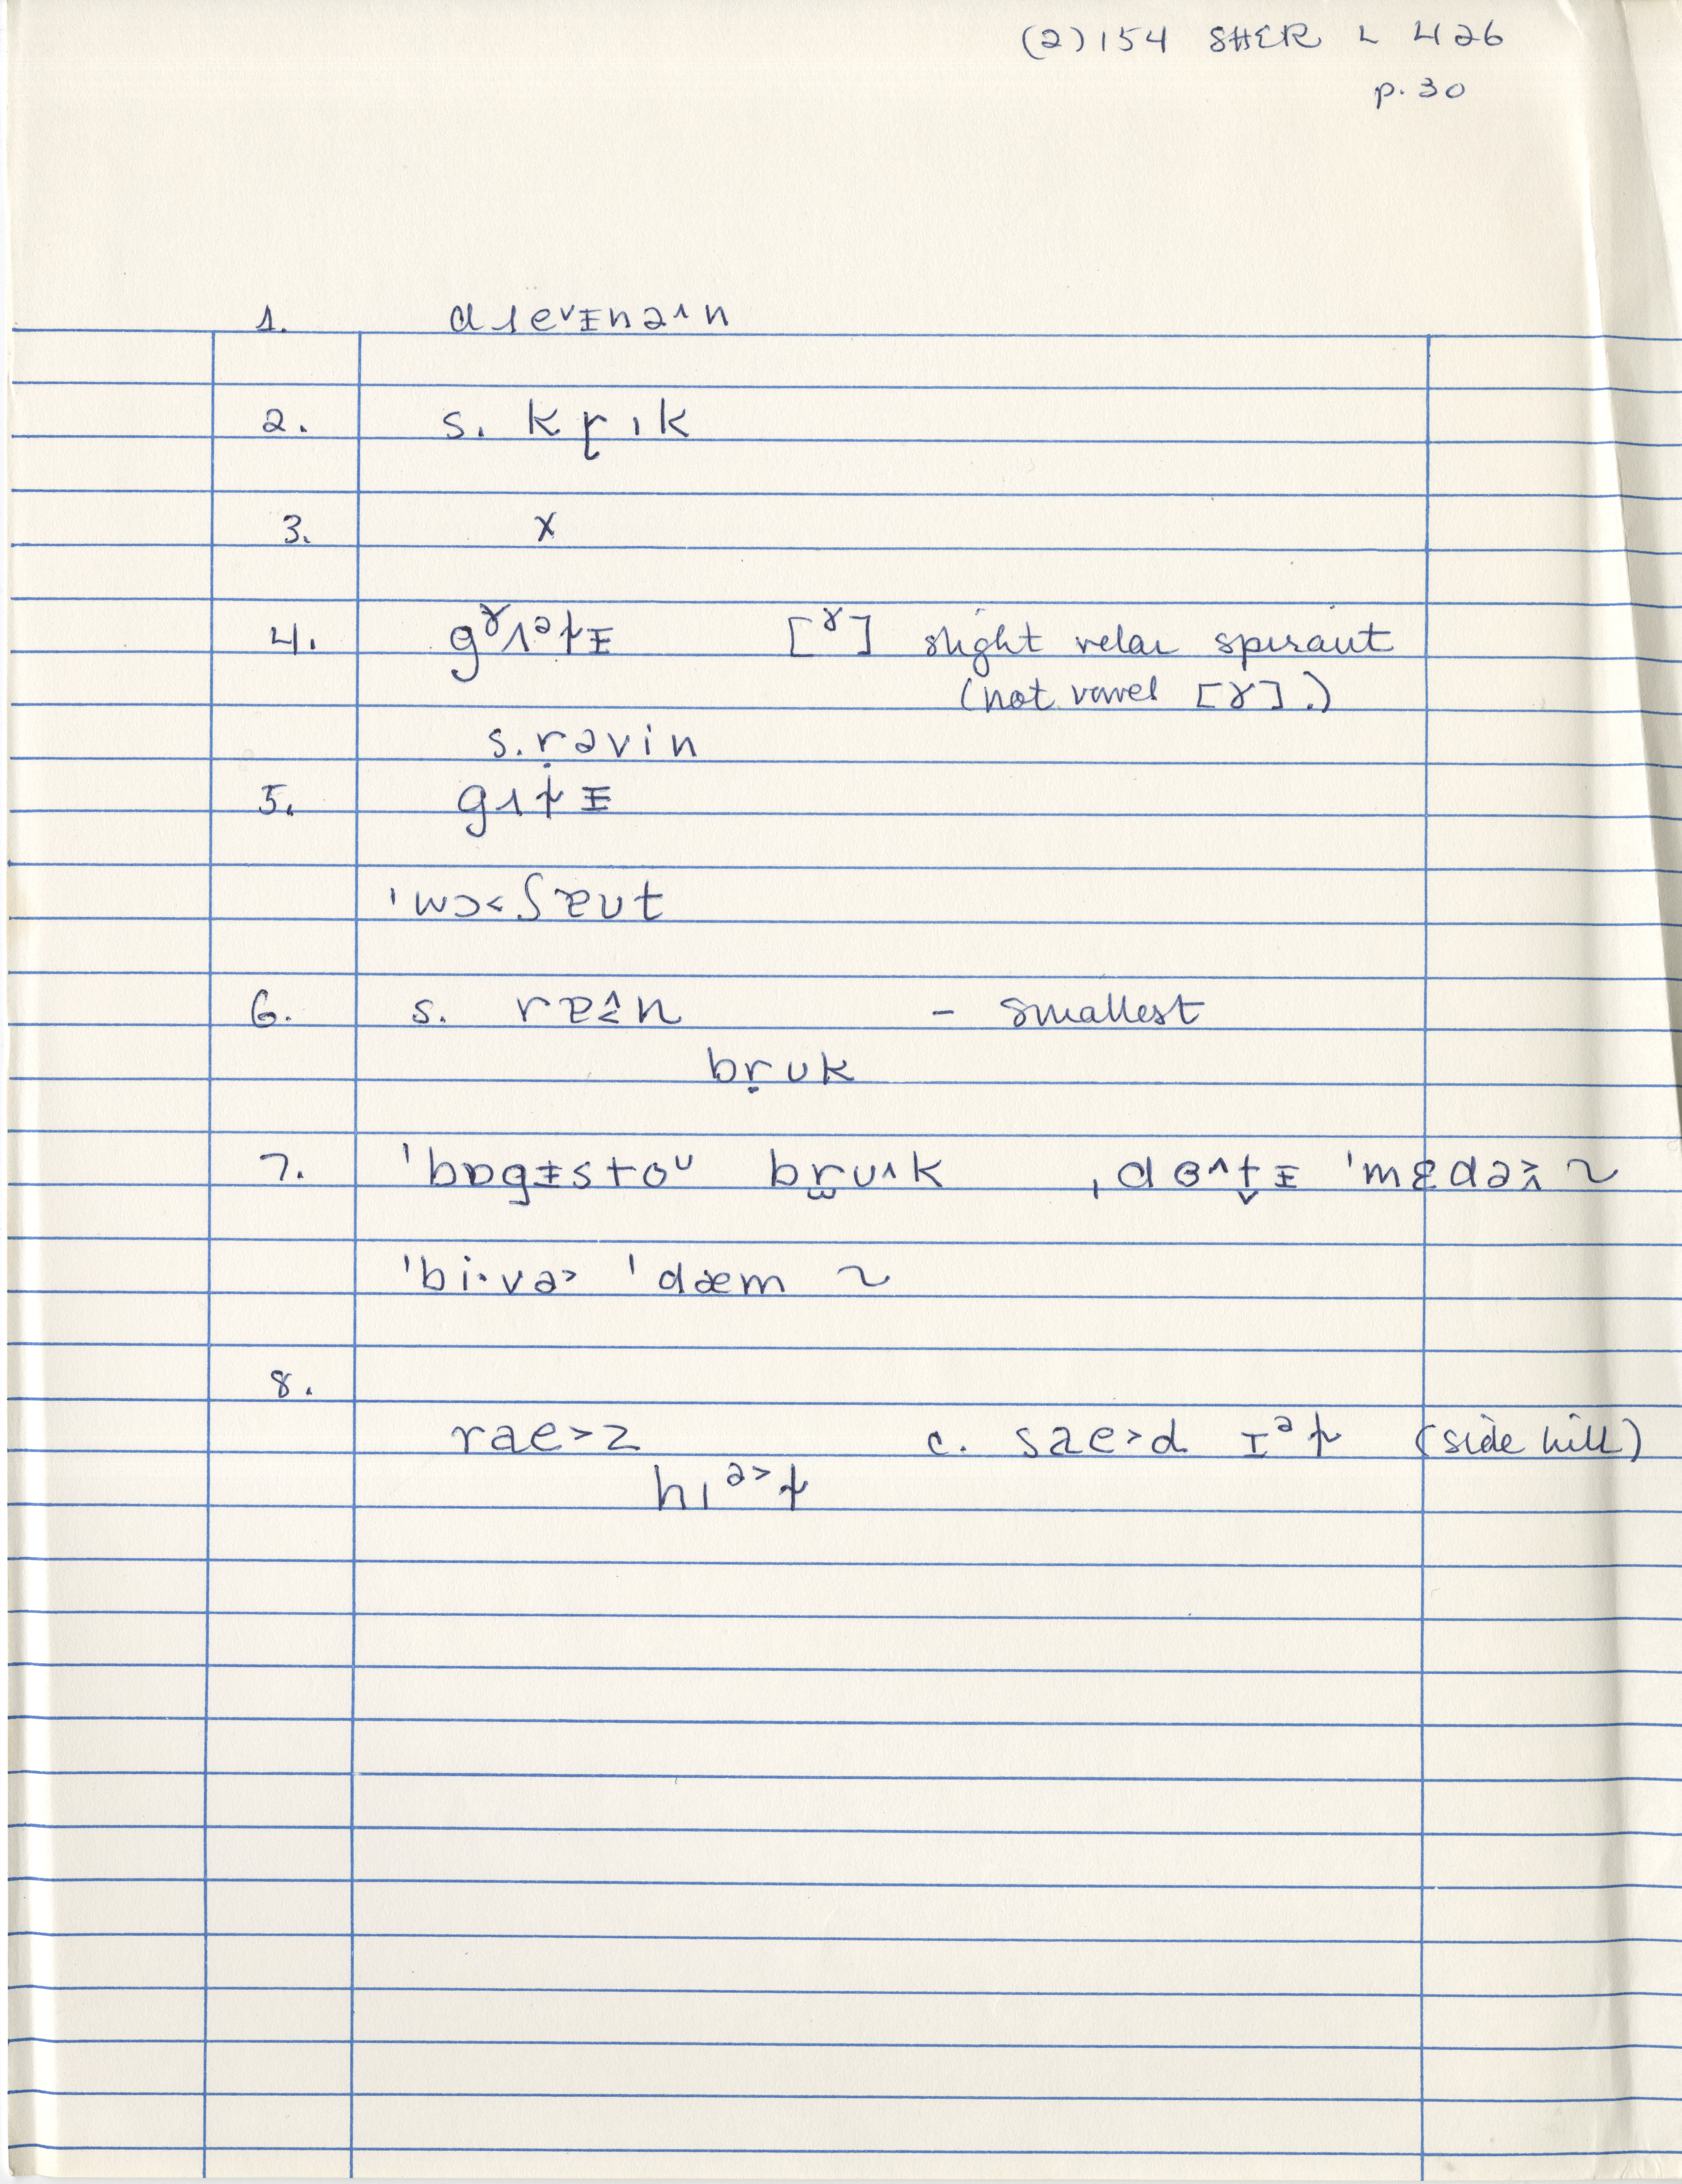 (2)154 SHER L 426
p. 30
1. dɹeᵛᵻnəʌn
2. s. kɽɪk
3. x
4. gˠʌᵊɫᵻ [ˠ] slight velar spirant
(not vowel [ɤ].)
s. ṛəvin
5. gʌɫᵻ
ˈwɔ˂ʃɐʊt
6. s. rɐ≙n – smallest
bṛuk
7. ˈbɒgᵻstoᶸ br̫ʊ˄k ˌdɵ˄t̬ᵻ ˈmɛdə˃ ~
ˈbi·və˃ ˈdæm ~
8.
rae˃z c. sae˃d ɪᵊɫ (side hill)
hɪᵊ˃ɫ